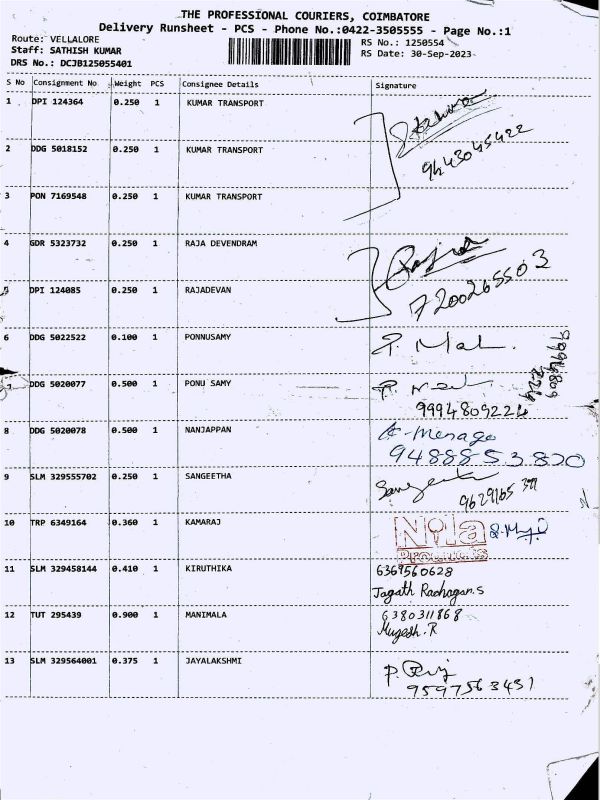 THE PROFESSIONAL COURIERS, COIMBATORE
Delivery Runsheet - PCS - Phone No.:0422-3505555 - Page No.:1
Route: VELLALORE
Staff: SATHISH KUMAR
DRS No.: DCJB125055401
RS No.: 1250554
RS Date: 30-Sep-2023
S No Consignment No Weight PCS Consignee Details Signature
1 DPI 124364 0.250 1 KUMAR TRANSPORT
2 DDG 5018152 0.250 1 KUMAR TRANSPORT 9443045422
3 PON 7169548 0.250 1 KUMAR TRANSPORT
4 GDR 5323732 0.250 1 RAJA DEVENDRAM
5 DPI 124085 0.250 1 RAJADEVAN 7200265503
6 DDG 5022522 0.100 1 PONNUSAMY
7 DDG 5020077 0.500 1 PONU SAMY
9994809224
9994809
224
8 DDG 5020078 0.500 1 NANJAPPAN
9488853820
9 SLM 329555702 0.250 1 SANGEETHA Sangeetha
9629165
10 TRP 6349164 0.360 1 KAMARAJ Nila
Products
11 SLM 329458144 0.410 1 KIRUTHIKA 6369560628
Jagath Radhagan.S
12 TUT 295439 0.900 1 MANIMALA 6380311868
Mugesh.R
13 SLM 329564001 0.375 1 JAYALAKSHMI
9597563431